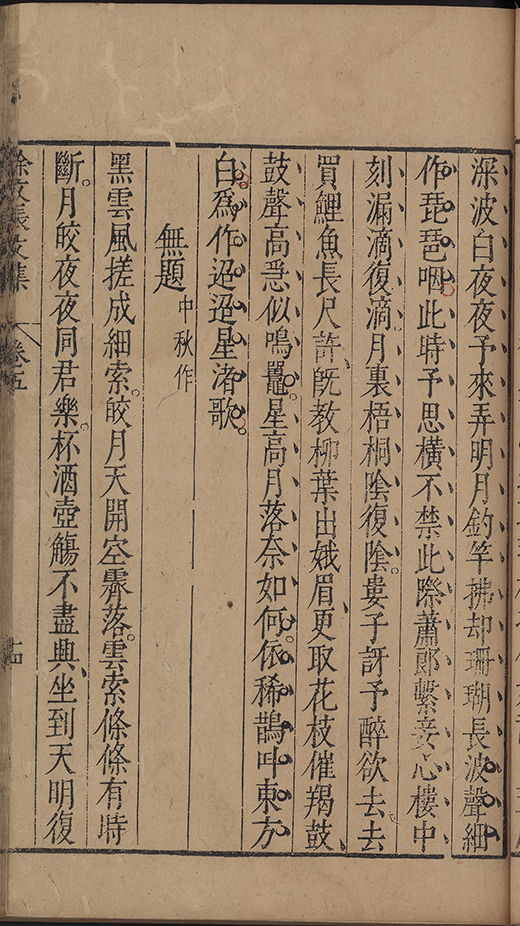 深波白夜夜予來弄明月釣竿拂却珊瑚長波聲細
作琵琶咽此時予思橫不禁此際蕭郎繫妾心樓中
刻漏滴復滴月裏梧桐陰復陰婁子訝予醉欲去去
買鯉魚長尺許旣教柳葉出娥眉更取花枝催羯鼓
鼓聲高急似鳴鼉星高月落奈如何依稀鵲叫東方
白爲作迢迢星渚歌
無題中秋作
黑雲風搓成細索皎月天開空霩落雲索條條有時
斷月皎夜夜同君樂杯酒壺觴不盡興坐到天明復
徐文長文集 卷五 十四